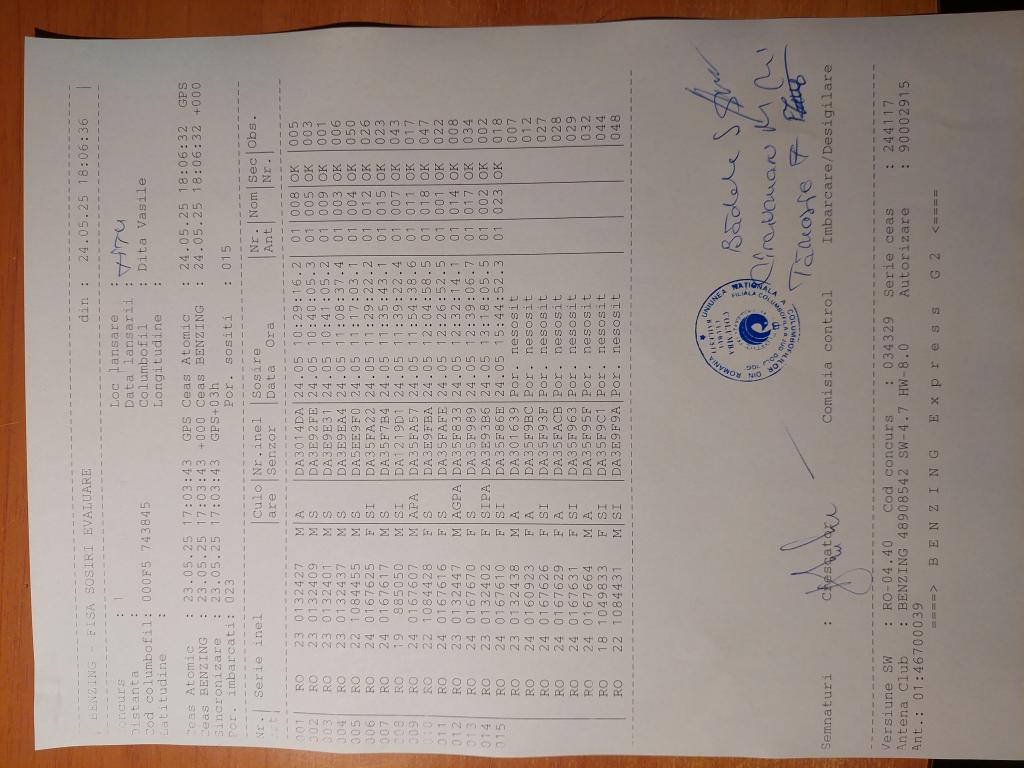 BENZING - FISA SOSIRI EVALUARE din : 24.05.25 18:06:36 |
Concurs : Loc lansare :
Distanta : Data lansarii :
Cod columbofil: 000F5 743845 Columbofil : Dita Vasile
Latitudine : Longitudine :
Ceas Atomic : 23.05.25 17:03:43 GPS Ceas Atomic : 24.05.25 18:06:32 GPS
Ceas BENZING : 23.05.25 17:03:43 +000 Ceas BENZING : 24.05.25 18:06:32 +000
Sincronizare : 23.05.25 17:03:43 GPS+03h
Por. imbarcati: 023 Por. sositi : 015
Nr.| Serie inel |Culo|Nr.inel |Sosire |Nr. |Nom|Sec|Obs.
|are |Senzor |Data Ora |Ant| |Nr.|
001 RO 23 0132427 M A DA3014DA 24.05 10:29:16.2 01 008 OK 005
002 RO 23 0132409 M S DA3E92FE 24.05 10:40:05.3 01 005 OK 003
003 RO 23 0132401 M S DA3E9E31 24.05 10:41:05.2 01 009 OK 001
004 RO 23 0132437 M S DA3E9EA4 24.05 11:08:37.4 01 003 OK 006
005 RO 22 1084455 M S DA5EE9F0 24.05 11:17:03.1 01 004 OK 050
006 RO 24 0167625 F SI DA35FA22 24.05 11:29:22.2 01 012 OK 026
007 RO 24 0167617 M S DA35F7B4 24.05 11:35:43.1 01 015 OK 023
008 RO 19 885050 M SI DA1219D1 24.05 11:39:22.4 01 007 OK 043
009 RO 24 0167607 M APA DA35FA57 24.05 11:54:38.6 01 011 OK 017
010 RO 22 1084428 F S DA3E9FBA 24.05 12:04:58.5 01 018 OK 047
011 RO 24 0167616 F S DA35FAFE 24.05 12:26:52.5 01 001 OK 022
012 RO 23 0132447 M AGPA DA35F833 24.05 12:32:14.1 01 014 OK 008
013 RO 24 0167670 F S DA35F989 24.05 12:39:06.7 01 017 OK 034
014 RO 23 0132402 F SIPA DA3E93B6 24.05 13:18:05.5 01 002 OK 002
015 RO 24 0167610 F SI DA35F86E 24.05 15:44:52.3 01 023 OK 018
RO 23 0132428 M A DA301639 Por. nesosit 007
RO 24 0160923 F A DA35F9BC Por. nesosit 012
RO 24 0167626 F SI DA35F93F Por. nesosit 027
RO 24 0167629 F A DA35FACB Por. nesosit 028
RO 24 0167631 F SI DA35F963 Por. nesosit 029
RO 24 0167664 M A DA35F95F Por. nesosit 032
RO 18 1049833 F SI DA35F9C1 Por. nesosit 044
RO 22 1084431 M SI DA3E9F9A Por. nesosit 048
UNIUNEA NATIONALA A COLUMBOFILILOR DIN ROMANIA
COLUMBA
Semnaturi : Crescatori Comisia control Imbarcare/Desigilare
Versiune SW : RO-04.40 Cod concurs : 034329 Serie ceas : 244117
Antena Club : BENZING 48908542 SW-4.7 HW-8.0 Autorizare : 90002915
Ant.: 01:46700039
====> B E N Z I N G E x p r e s s G 2 <====